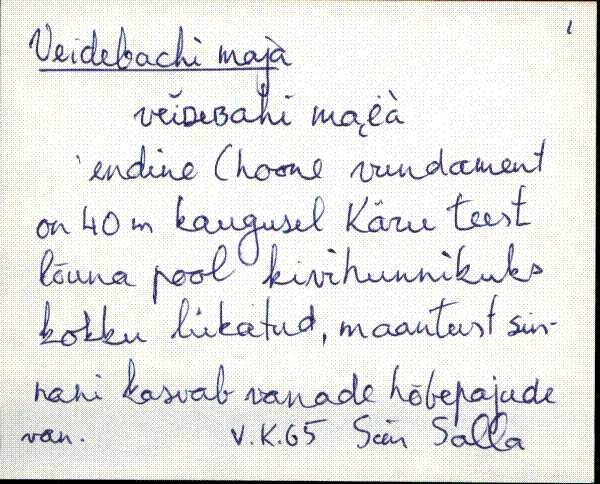 Veidebachi majà
endine (hoone vundament
on 40 m kaugusel Käru teest
lõuna pool kivihunnikuks
kokku lükatud, maanteest sin-
nani kasvab vanade hõbepajude
V.K.65 Salla